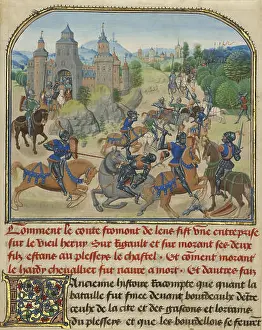 Comment le conte fromont de lens fist une entreprise
sur le vieil heruy Sur Rigault et sur morant ses deux
filz estans au plesseys le chastel. Et coment morant
le hardy chevallier fut naure a mort. Et dautres fais
Ancienne histoire Racompte que quant la
bataille fut finee devant bourdeaulx dentre
ceulx de la cite et des gascons et lorrains
du plesseys et que les bourdellois se seurent